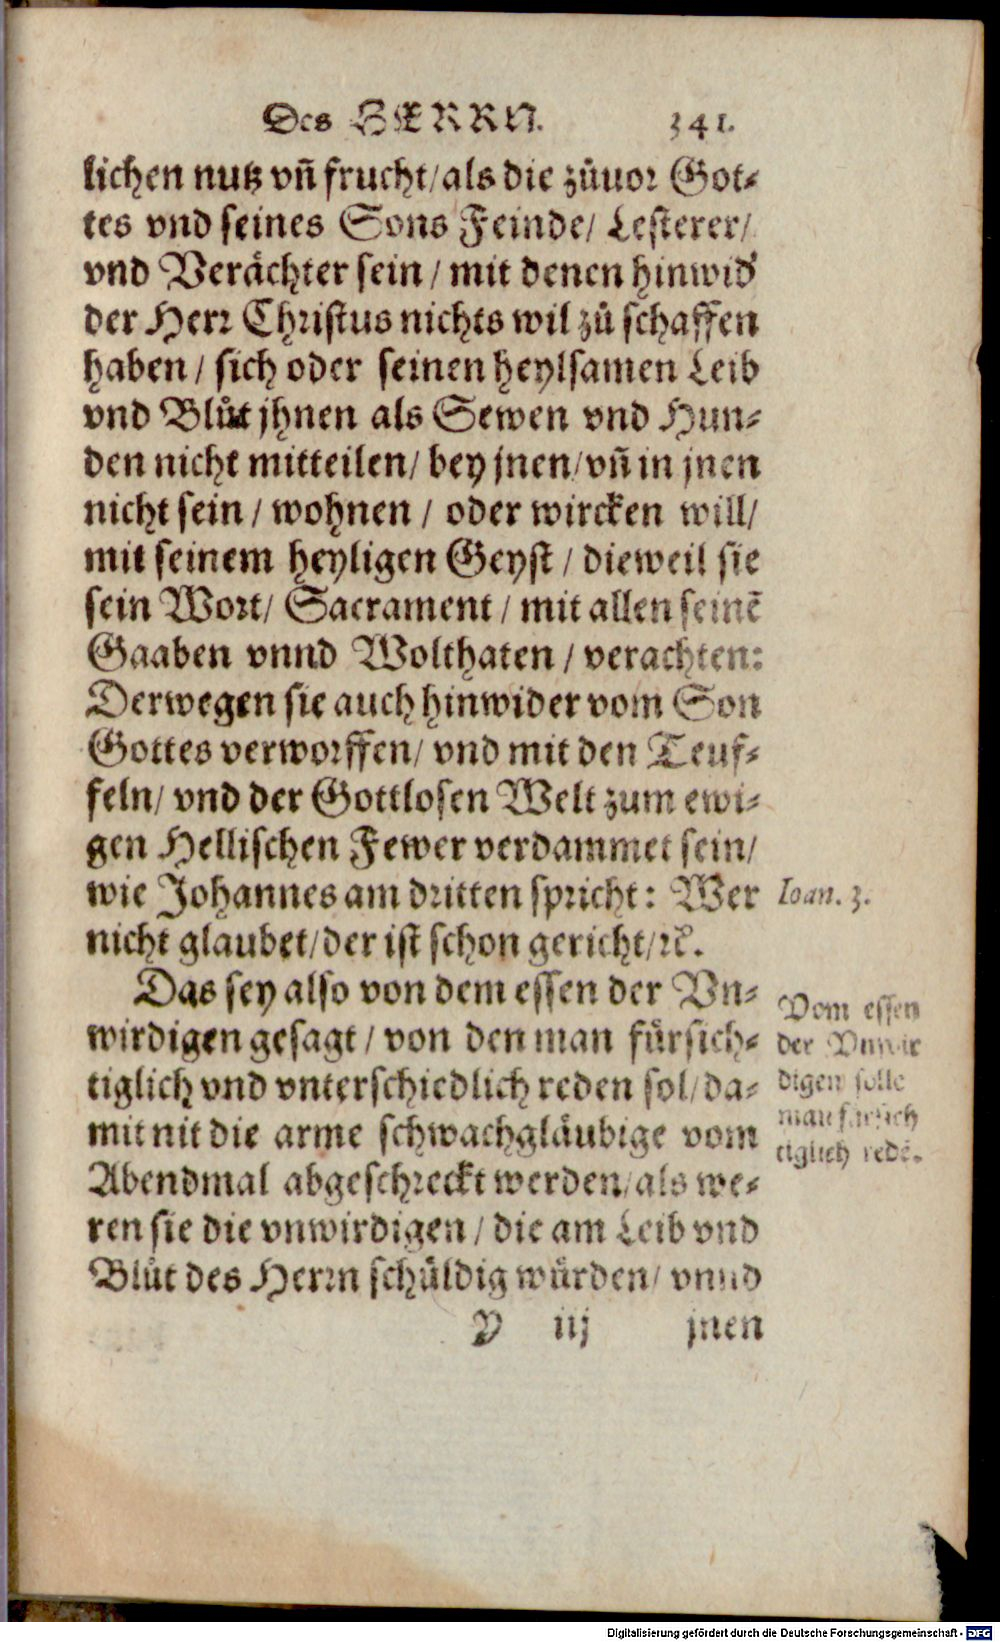 Des HERRN. 341.
lichen nutz vn̄ frucht/als die zůuor Got-
tes vnd seines Sons Feinde/ Lesterer/
vnd Verächter sein / mit denen hinwid'
der Herr Christus nichts wil zů schaffen
haben / sich oder seinen heylsamen Leib
vnd Blůt jhnen als Sewen vnd Hun-
den nicht mitteilen/ bey jnen/vn̄ in jnen
nicht sein / wohnen / oder wircken will/
mit seinem heyligen Geyst / dieweil sie
sein Wort/ Sacrament / mit allen seinē
Gaaben vnnd Wolthaten / verachten:
Derwegen sie auch hinwider vom Son
Gottes verworffen/ vnd mit den Teuf-
feln/ vnd der Gottlosen Welt zum ewi-
gen Hellischen Fewer verdammet sein/
wie Johannes am dritten spricht: Wer
Ioan. 3.
nicht glaubet/der ist schon gericht/ꝛc.
Das sey also von dem essen der Vn-
wirdigen gesagt / von den man fürsich-
tiglich vnd vnterschiedlich reden sol/da-
mit nit die arme schwachgläubige vom
Abendmal abgeschreckt werden/als we-
ren sie die vnwirdigen / die am Leib vnd
Blůt des Herrn schüldig würden/ vnnd
Vom essen
der Vnwir
digen solle
man fürsich
tiglich redē.
V iij jnen
Digitalisierung gefördert durch die Deutsche Forschungsgemeinschaft - DFG